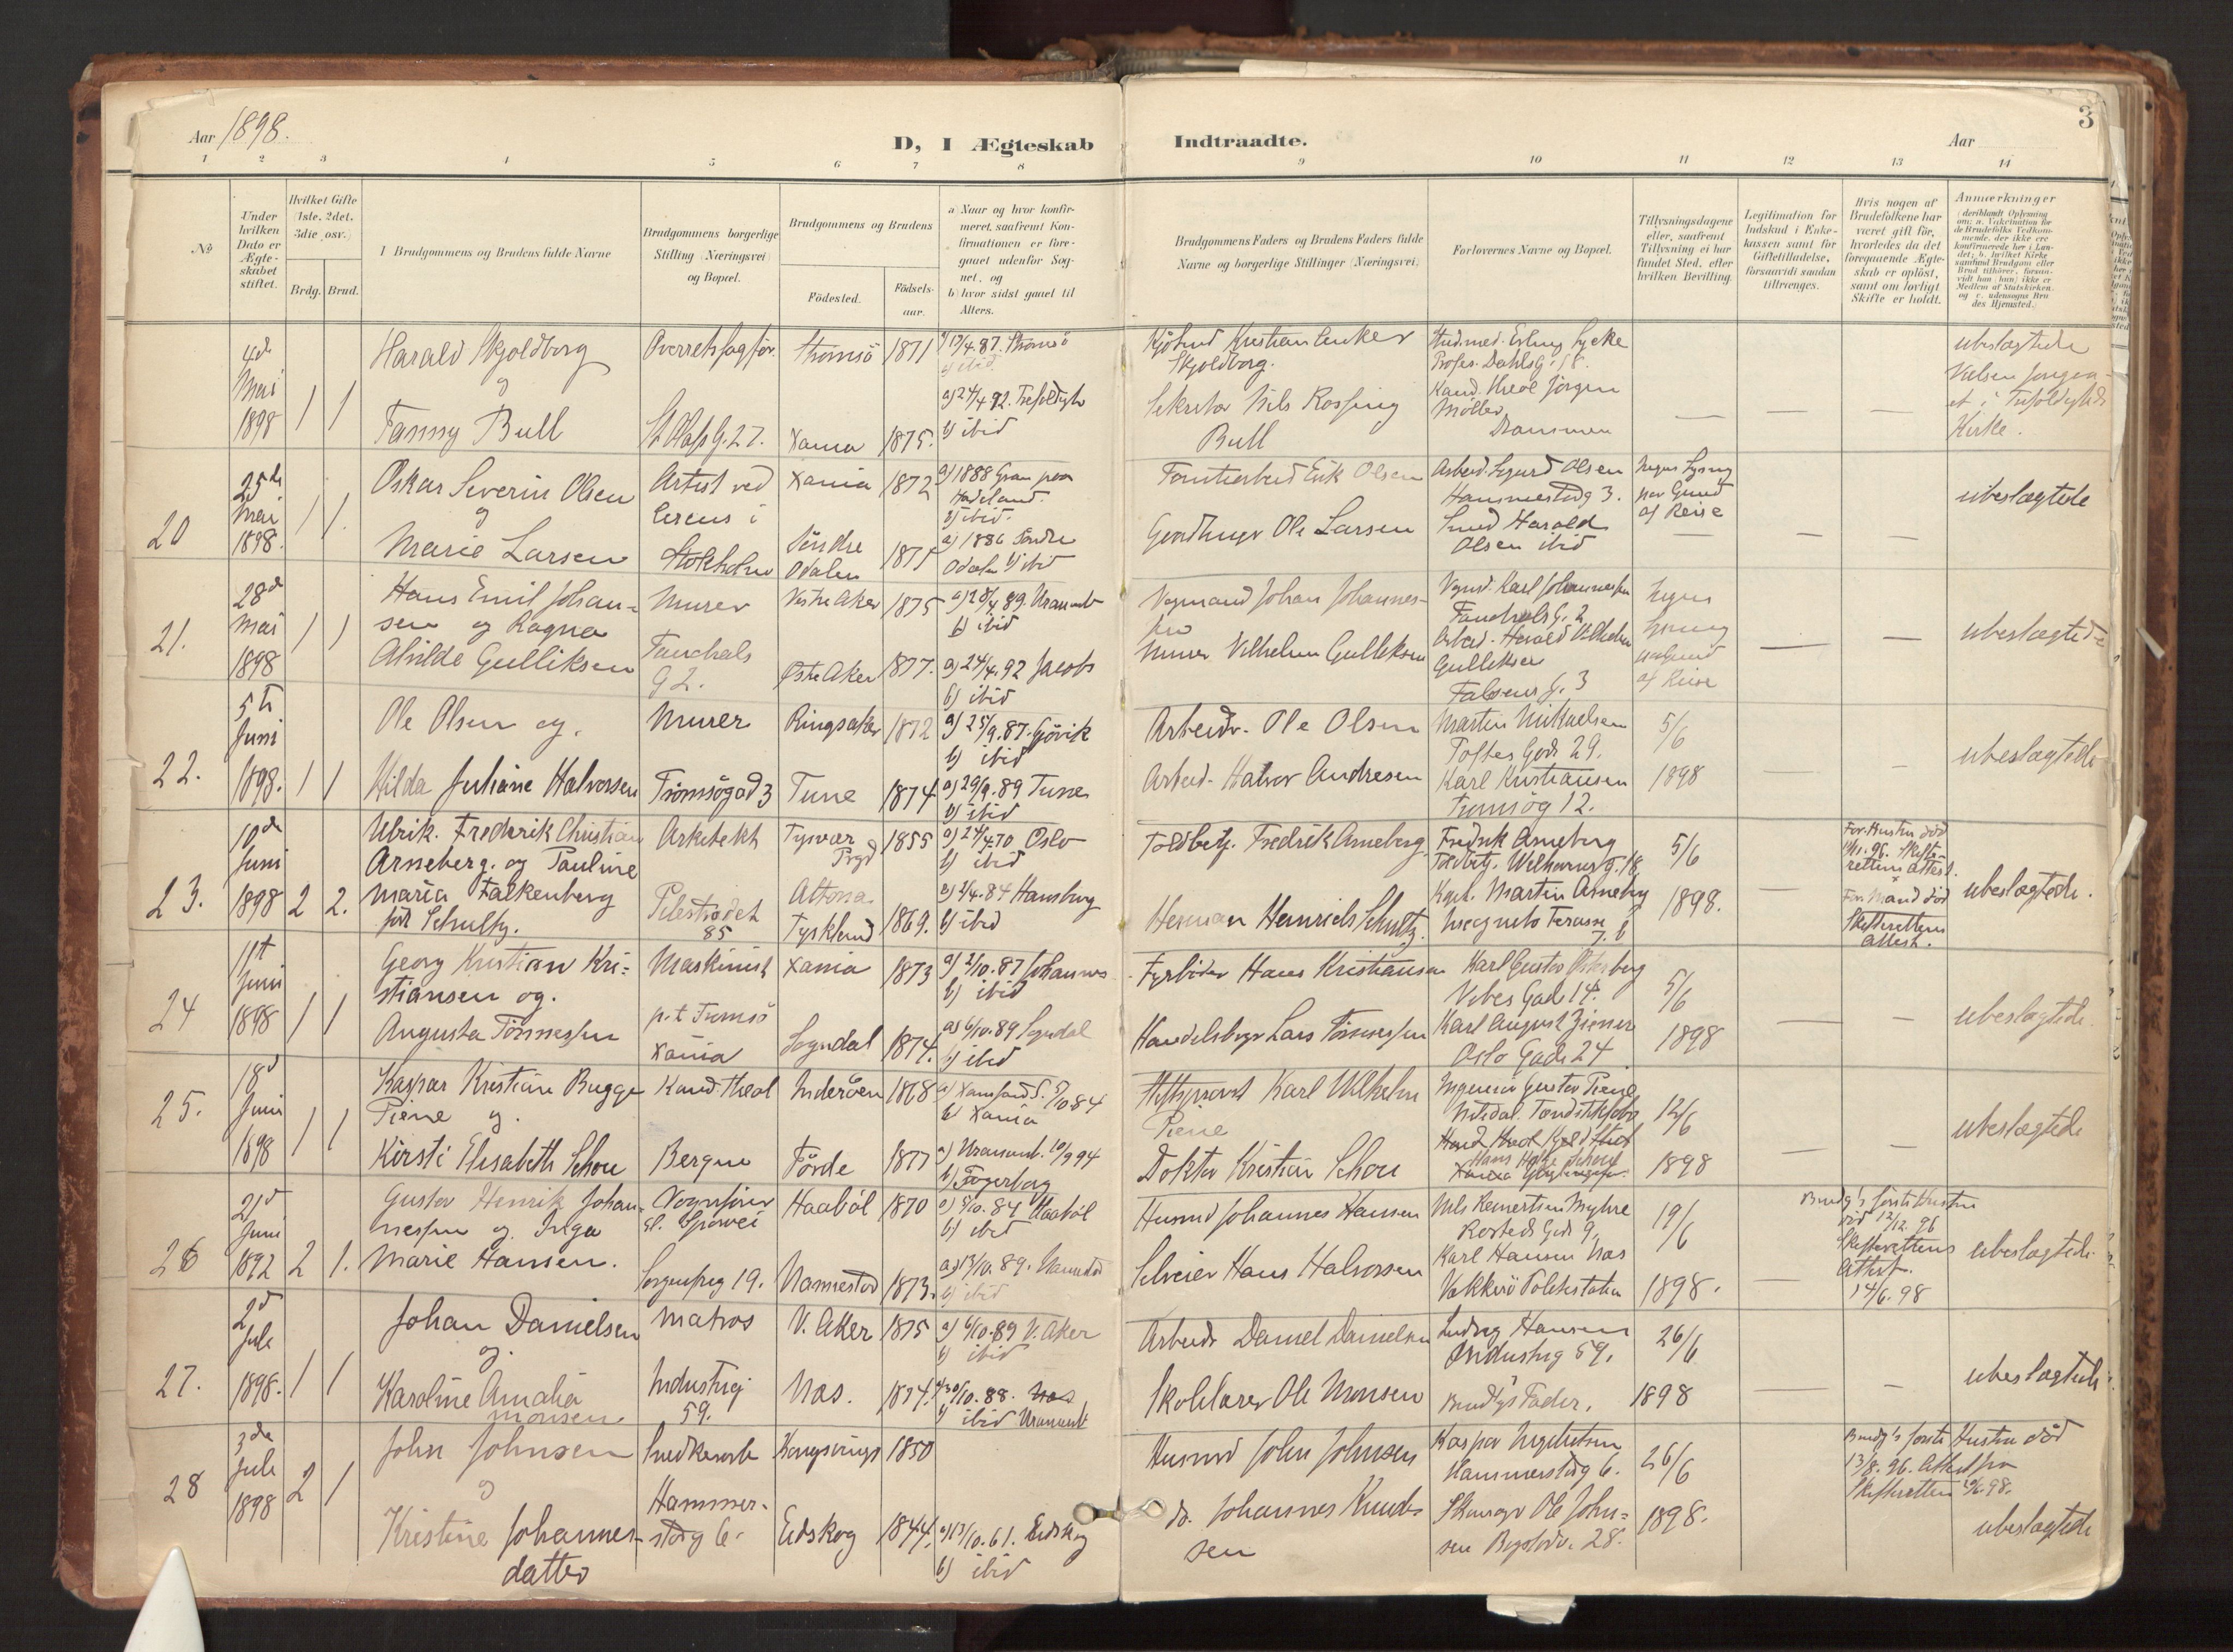 Aar 1898.
D, I Ægteskab Indtraadte.
Aar
3
1 2 3 4 5 6 7 8 9 10 11 12 13 14
No
Under hvilken Dato er Ægteskabet stiftet.
Hvilket Gifte (1ste, 2det, 3die osv.)
Brdg. Brud.
Brudgommens og Brudens fulde Navne
Brudgommens borgerlige Stilling (Næringsvei) og Bopæl.
Brudgommens og Brudens
Födested.
Födselsaar.
a) Naar og hvor konfirmeret, saafremt Konfirmationen er foregaaet udenfor Sognet, og
b) hvor sidst gaaet til Alters.
Brudgommens Faders og Brudens Faders fulde Navne og borgerlige Stillinger (Næringsvei)
Forlovernes Navne og Bopæl.
Tillysningsdagene eller, saafremt Tillysning ei har fundet Sted, efter hvilken Bevilling.
Legitimation for Indskud i Enkekassen samt for Giftetilladelse, forsaavidt saadan tiltrænges.
Hvis nogen af Brudefolkene har været gift för, hvorledes da det foregaaende Ægteskab er oplöst, samt om lovligt Skifte er holdt.
Anmærkninger
4de Mai 1898 1 1
Harald Skjoldborg
og
Fanny Bull
Overretssagför.
St Olafs G. 27.
Strömsö 1871
Xania 1875.
a) 17/4.87. Strömsö
b) ibid
a) 24/4 92. Trefoldigh
b) ibid
Skjoldborg.
Sekretær Nils Rossing
Bull
Stud. med. Erling Lycke
Profes. Dahls G. 18.
Kand. theol Jörgen
Möller
Drammen
ubeslægtede
Kirke.
20 25de Mai 1898. 1 1.
Oskar Severin Olsen
og
Marie Larsen
Artist ved
Circus i
Stokholm
Xania 1872
Söndre Odalen 1875
a) 1888 Gran paa
Hadeland.
b) ibid.
a) 1886 Söndre
Odalen b) ibid
Erik Olsen
Ole Larsen
Arbeid. Sigurd Olsen
Hammerstadg 3.
Smed Harald
Olsen ibid
Ingen Lysing
paa Grund
af Reise
ubeslægtede
21. 28de Mai 1898 1 1
Hans Emil Johan-
sen og Ragna
Alvilde Gulliksen
Murer
Fauchals
G 2.
Vestre Aker 1875
Östre Aker 1877.
b) ibid
a) 24/4.92 Jacobs
b) ibid
Vognmand Johan Johannes-
sen
Murer Vilhelm Gulliksen
Vognd. Karl Johannessen
Fauchals G. 2
Arbeid. Harald Vilhelm
Gulliksen
Falsens G. 3
Ingen
Lysing
af Reise
ubeslægtede
22. 5te Juni 1898. 1 1
Ole Olsen og.
Hilda Juliane Halvorsen
Murer
Tromsögad 3
Ringsaker 1872
Tune 1874
a) 25/9.87. Gjövik
b) ibid
a) 29/9.89 Tune
b) ibid
Arbeidr. Ole Olsen
Arbeid. Halvor Andresen
Martin Mikaelsen
Toftes Gade 29.
Karl Kristiansen
Tromsög 12.
5/6
1898
ubeslægtede
23. 10de Juni 1898 2 2.
Ulrik Frederik Christian
Arneberg. og Pauline
Maria Falkenberg
föd Schultz.
Arkitekt
Pilestrædet
85
Tysvær Prgd 1855
Altona Tyskland 1869.
a) 24/4.70 Oslo
b) ibid
a) 2/4.84 Hamburg
b) ibid
Toldbetj. Fredrik Arneberg
Herman Heinrich Schultz.
Fredrik Arneberg
Kapt. Martin Arneberg
5/6
1898.
For. Hustru död
rettens attest.
For Mand död
Skifterettens
attest.
ubeslægtede.
24 11te Juni 1898 1 1
Georg Kristian Kri-
stiansen og.
Augusta Tönnessen
Maskinist
p.t Tromsö
Xania
Xania 1873
Sogndal 1874.
a) 2/10.87 Johannes
b) ibid
a) 6/10.89 Sogndal
b) ibid
Fyrböder Hans Kristiansen
Lars Tönnessen
Karl Gustav Österberg
Vibes Gade 14.
Karl August Ziener
Oslo Gade 24
5/6
1898
ubeslægtede
25. 18de Juni 1898 1 1
Kaspar Kristian Bugge
Piene og.
Kirsti Elisabeth Schou
Kand theol
Bergen
Inderöen 1868
Förde 1877
b) Xania
a) Uranienb. 10/9 94
b) Fagerborg
Karl Wilhelm
Piene
Doktor Kristian Schou
Ingeniör Gustav Piene
12/6
1898
ubeslægtede
26 21de Juni 1892 2 1.
Gustav Henrik Johan-
nessen og Inga
Marie Hansen.
Sorgenfrig 19.
Haaböl 1870
Nannestad 1873.
a) 5/10.84 Haaböl
b) ibid
a) 13/10.89. Nannestad
b) ibid
Husmd Johannes Hansen
Selveier Hans Halvorsen
Nils Reinertsen Myhre
Rosteds Gade 9.
Karl Hansen Næs
Vækkerö Politistation
19/6
1898.
Brudg's förste Hustru
död 12/12 96
Skifterettens
Attest.
14/6. 98
ubeslægtede.
27. 2de Juli 1898. 1 1
Johan Danielsen
og.
Karoline Amalia
Monsen
Matros
Industrig
59.
V. Aker 1875
Næs. 1874.
a) 6/10.89 V. Aker
b) ibid
b) ibid Uranienb
Arbeidr Daniel Danielsen
Skolelærer Ole Monsen
Ludvig Hansen
Industrig 59.
Brudens Fader.
26/6
1898
ubeslægtede
28 3de Juli 1898 2 1
John Johnsen
og
Kristine Johannes-
datter
Snedkerarb
Hammer-
stadg 6.
Kongsvinger 1850
Eidskog 1844.
a) 13/10.61. Eidskog
b) ibid
Husmd John Johnsen
do. Johannes Knud-
sen
Kaspar Ingebretsen
Hammerstadg 6.
Ole John-
sen 28.
26/6
1898.
Brudg's förste Hustru död
13/8. 96. Attest fra
Skifteretten
ubeslægtede